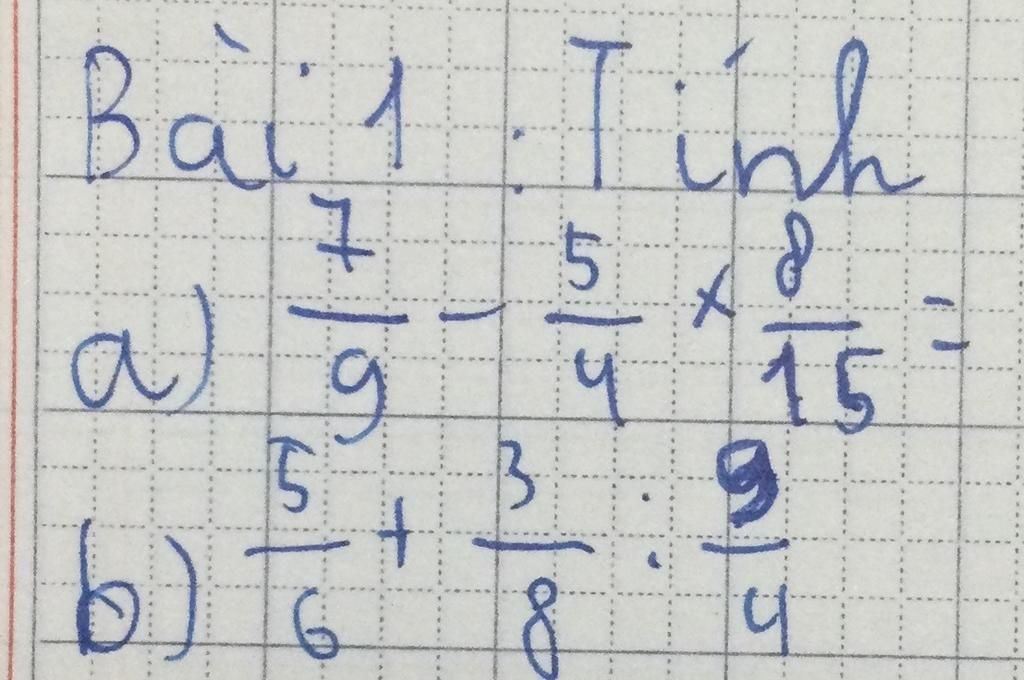 Bài 1 : Tính
a) 7/9 - 5/4 × 8/15 =
b) 5/6 + 3/8 : 9/4